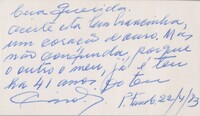 Cica Querida.
Aceite esta lembrancinha,
um coração de ouro. Mas
não confunda, porque
o outro o meu, já é teu
ha 41 anos. Do teu
22/4/83